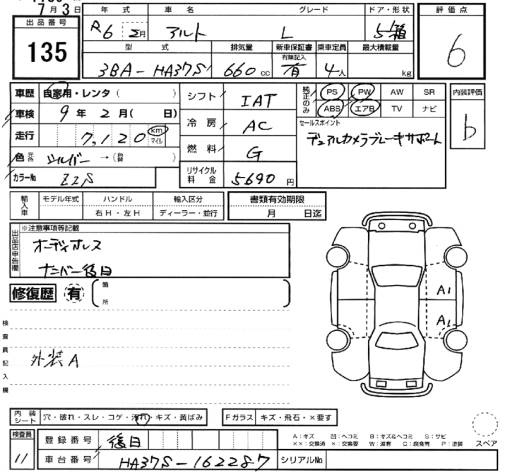 7月3日
出品番号
135
年式 車名 グレード ドア・形状
R6 2月 アルト L 5 箱
型式 排気量 新車保証書 有無記入 乗車定員 最大積載量
3BA-HA37S 660cc 有 4人 kg
評価点
6
車歴 自家用・レンタ( )
車検 9年2月( 日)
走行 7,120 km マイル
色 シルバー →( )
カラーNo ZZS
シフト IAT
冷房 AC
燃料 G
リサイクル料金 5690円
純正のみ PS PW AW SR
ABS エアB TV ナビ
セールスポイント
デュアルカメラブレーキサポート
内装評価
b
輸入車 モデル年式 ハンドル 輸入区分
右H・左H ディーラー・並行
書類有効期限
月 日迄
出品店申告欄
※注意事項等記載
オーディオレス
ナンバー後日
修復歴 有 箇所
検査員記入欄
外装A
A1
A1
内装シート 穴・破れ・スレ・コゲ・汚れ・キズ・黄ばみ
Fガラス キズ・飛石・×要す
検査員
11
登録番号 後日
車台番号 HA37S-162287 シリアルNo
A:キズ 凹:ヘコミ B:キズ&ヘコミ S:サビ
××:交換済 ×:要交換 W:波 C:腐食 P:塗装
スペア